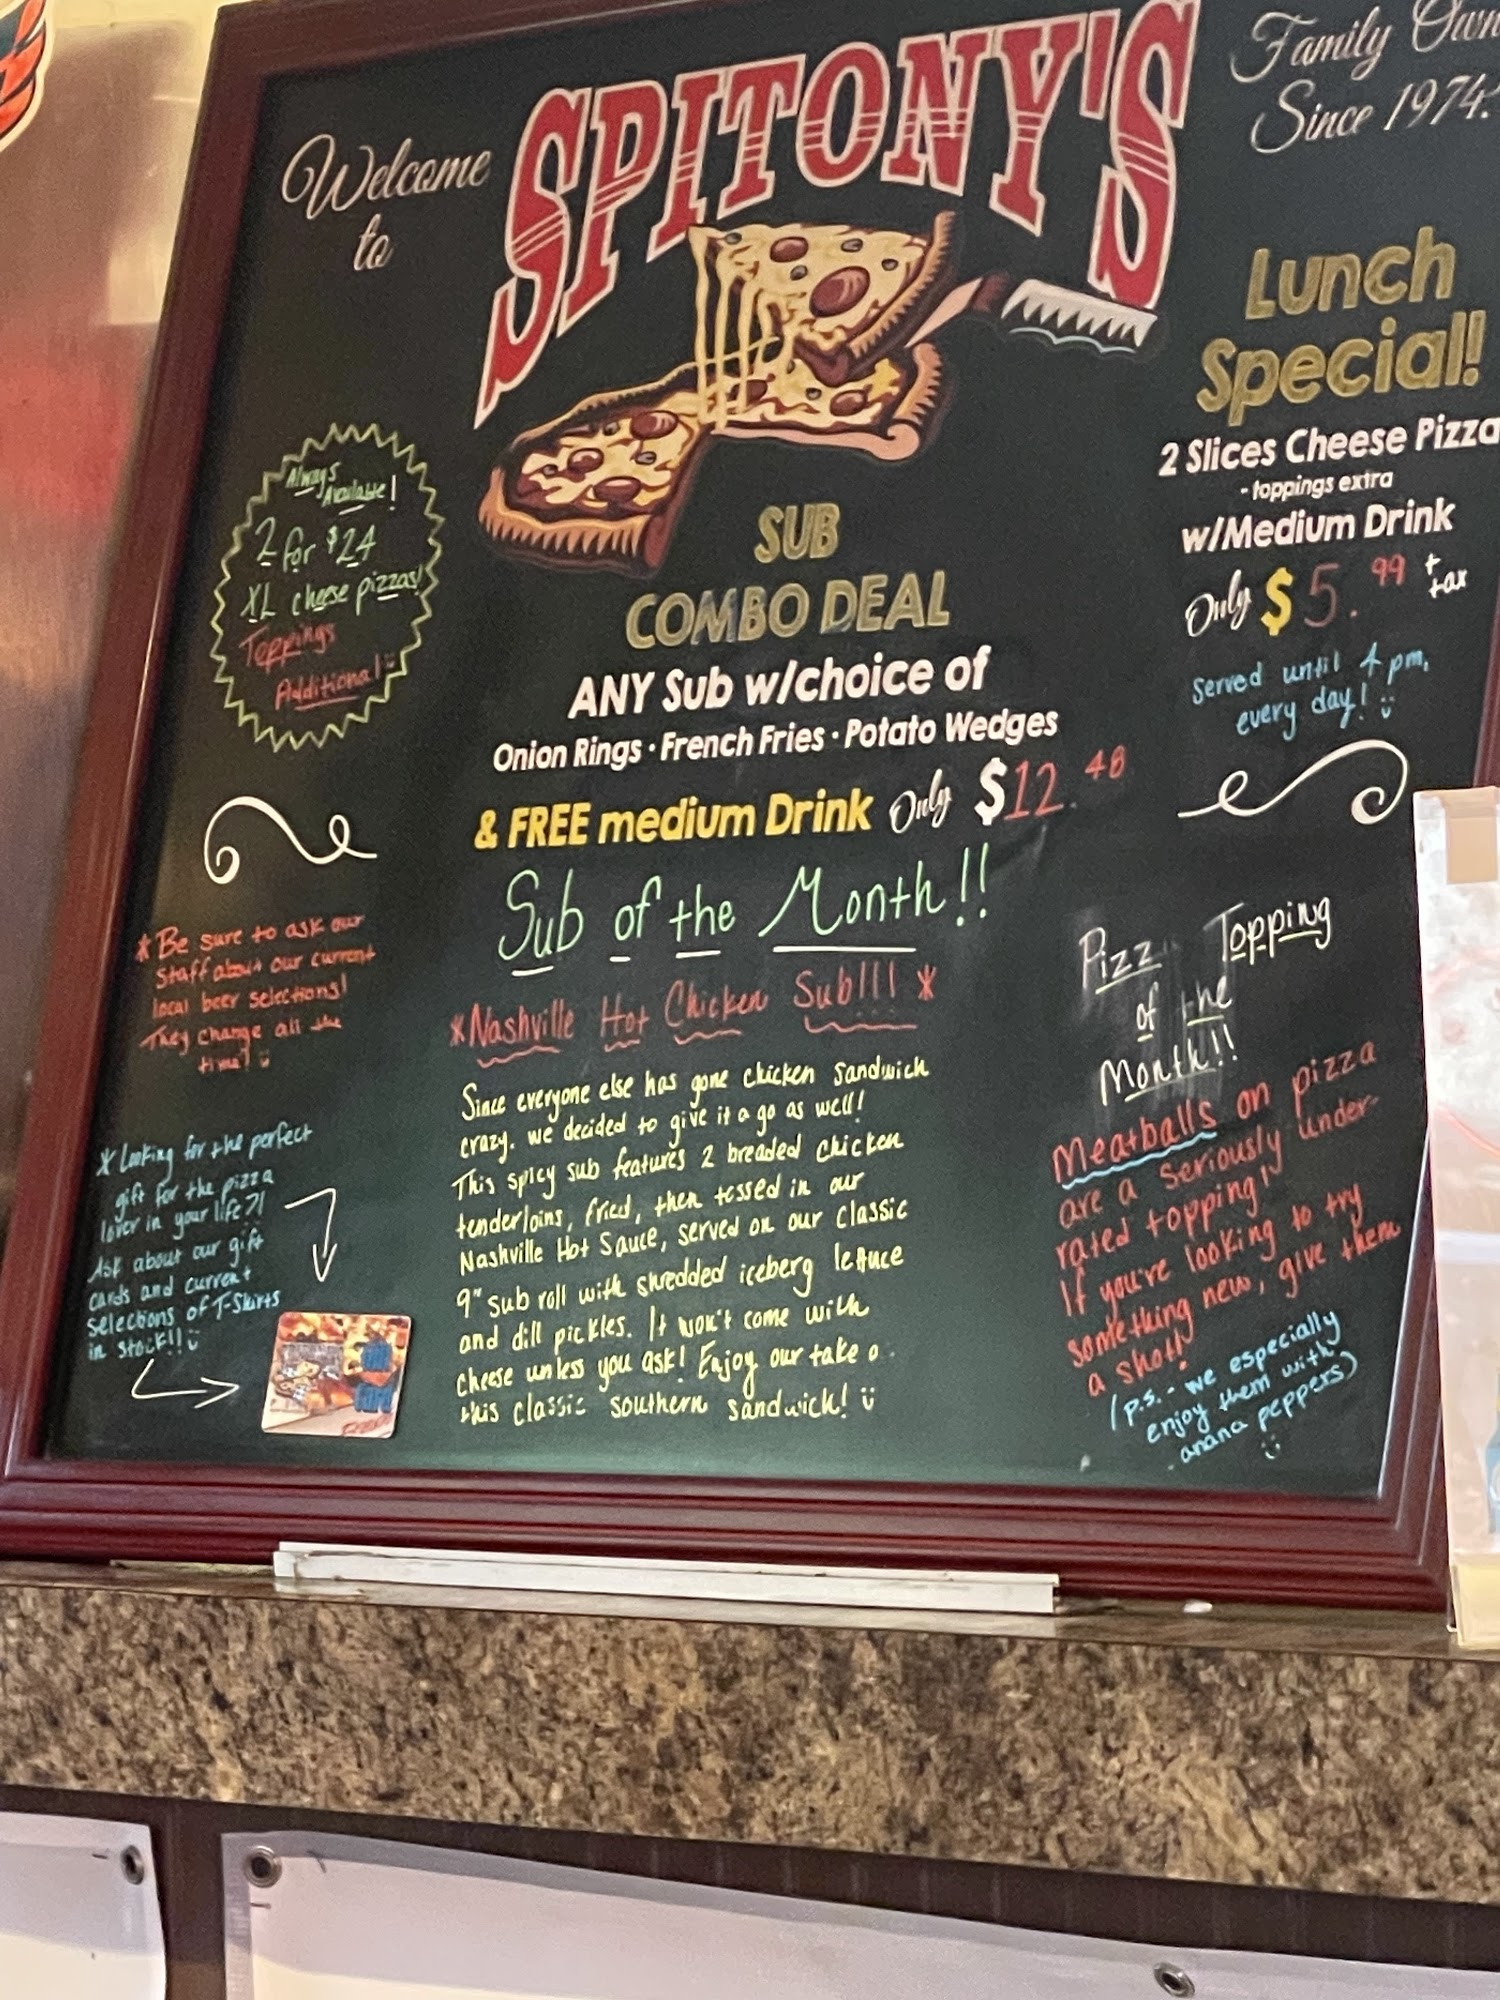 Welcome
to
SPITONY'S
Family Own
Since 1974.
Always
Available!
2 for $24
XL cheese pizzas!
Toppings
Additional
SUB
COMBO DEAL
ANY Sub w/choice of
Onion Rings · French Fries · Potato Wedges
& FREE medium Drink Only $12.48
Lunch
Special!
2 Slices Cheese Pizza
- toppings extra
w/Medium Drink
Only $5.99 + tax
Served until 4 pm,
every day!
* Be sure to ask our
staff about our current
local beer selections!
They change all the
time!
* Looking for the perfect
gift for the pizza
lover in your life?!
Ask about our gift
cards and current
selections of T-Shirts
in stock!!
Sub of the Month!!
*Nashville Hot Chicken Sub!!! *
Since everyone else has gone chicken sandwich
crazy. we decided to give it a go as well!
This spicy sub features 2 breaded chicken
tenderloins, fried, then tossed in our
Nashville Hot Sauce, served on our classic
9" sub roll with shredded iceberg lettuce
and dill pickles. It won't come with
cheese unless you ask! Enjoy our take o
this classic southern sandwich!
Pizz Topping
of the
Month!!
Meatballs on pizza
are a seriously under-
rated topping!
If you're looking to try
something new, give them
a shot!
(p.s. - we especially
enjoy them with
anana peppers)